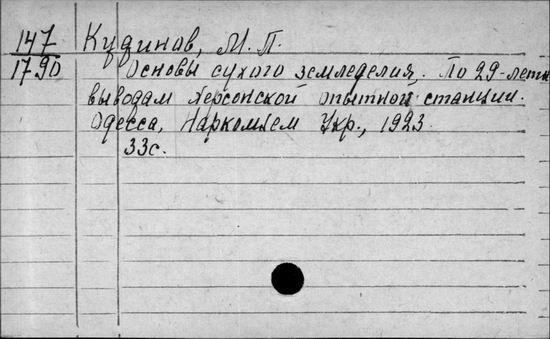 147 Кудинов, М. П.
1790 Основы сухого земледелия. По 29-летн
выводам Херсонской опытной станции.
Одесса, Наркомзем Укр., 1923.
33с.